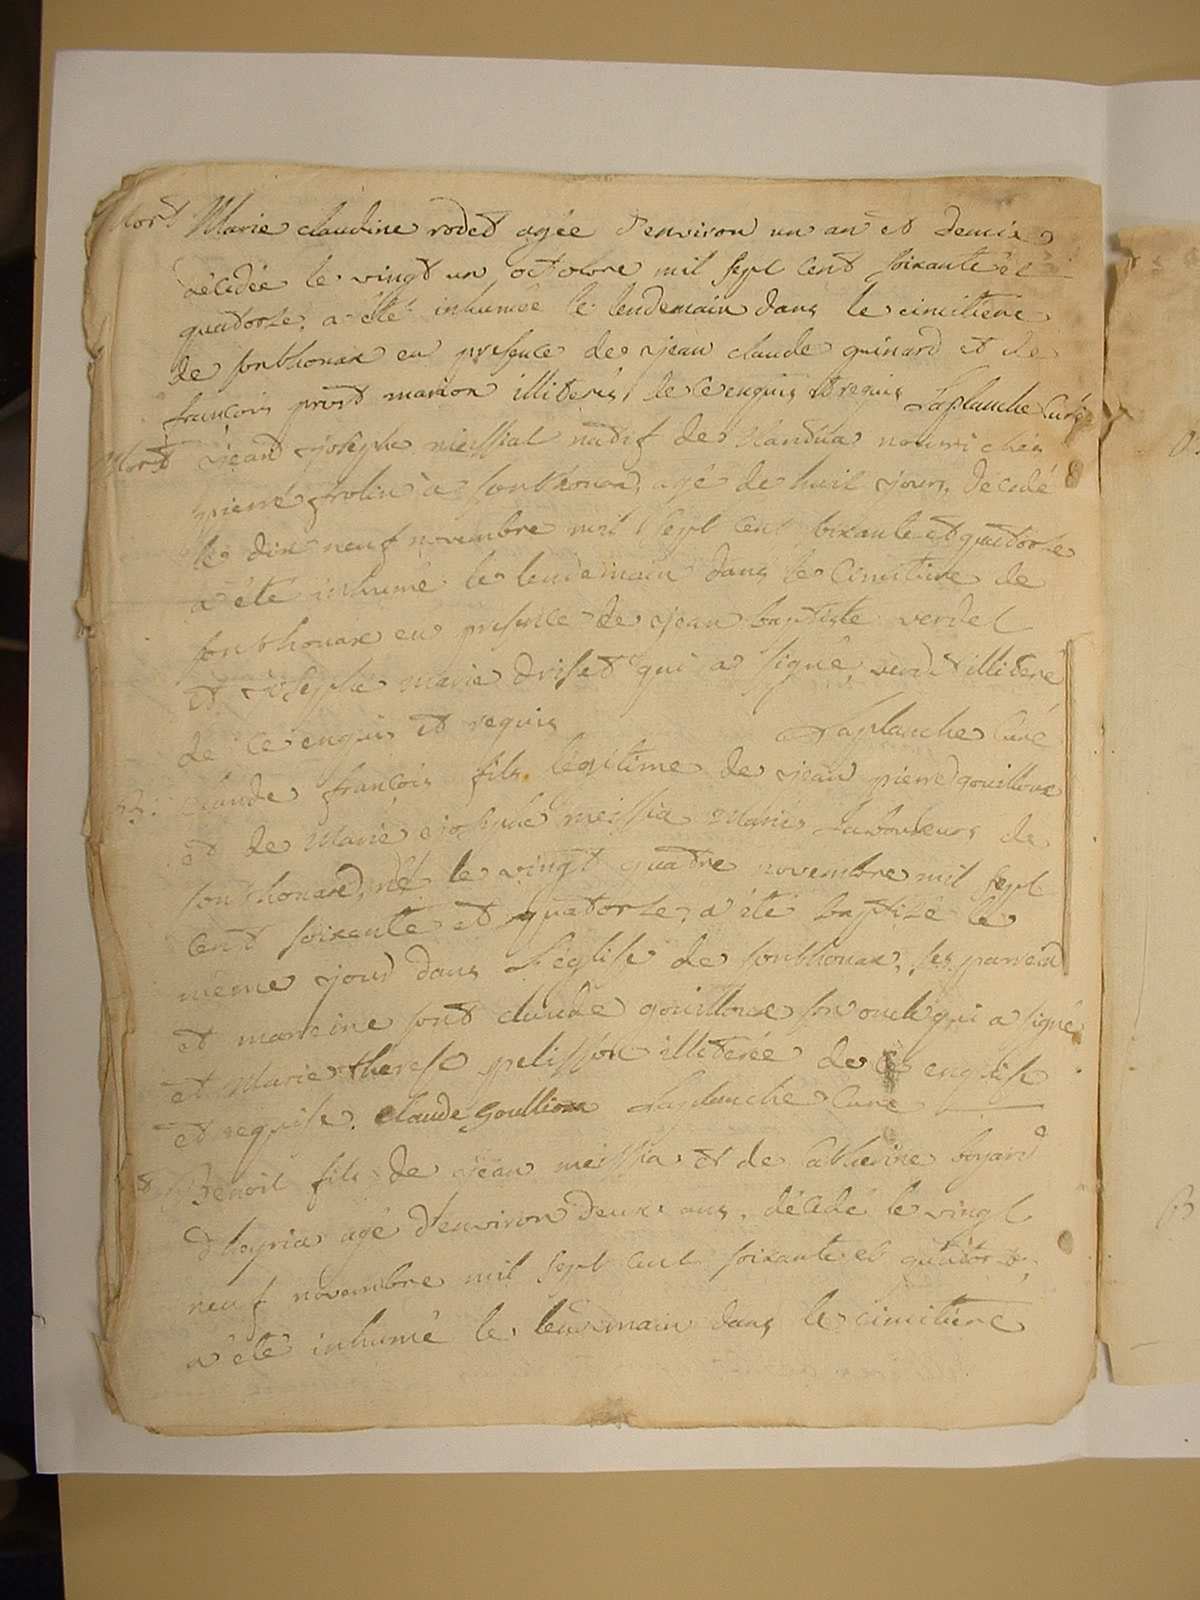 Mort Marie claudine rodet agée d'environ un an et demie
décédée le vingt un octobre mil sept cent soixante et
quatorse, a été inhumée le lendemain dans le cimitiere
de sonthonax en presence de jean claude guinard et de
françois prost marion illiterés de ce enquis et requis Laplanche Curé
Mort jean joseph meissiat natif de Nandua nourri chés
pierre frolin à sonthonax, agé de huit jours, décédé
le dix neuf novembre mil sept cent soixante et quatorse
a été inhumé le lendemain dans le Cimitiere de
sonthonax en presence de jean baptiste verdet
et joseph marie driset qui a signé, verdet illiteré
de ce enquis et requis Laplanche Curé
B. Claude françois fils légitime de jean pierre gouilloux
et de Marie josephe meissia Mariés Laboureurs de
sonthonax, né le vingt quatre novembre mil sept
cent soixante et quatorse, a été baptisé le
même jour dans L'église de sonthonax, ses parrein
et marreine sont claude gouilloux son oncle qui a signé
et Marie therese pelisson illiterée de ce enquise
et requise. claude Goullioux Laplanche Curé
Benoit fils de jean meissia et de Catherine boyard
d'heyria agé d'environ deux ans, décédé le vingt
neuf novembre mil sept cent soixante et quatorse,
a été inhumé le lendemain dans le cimitiere